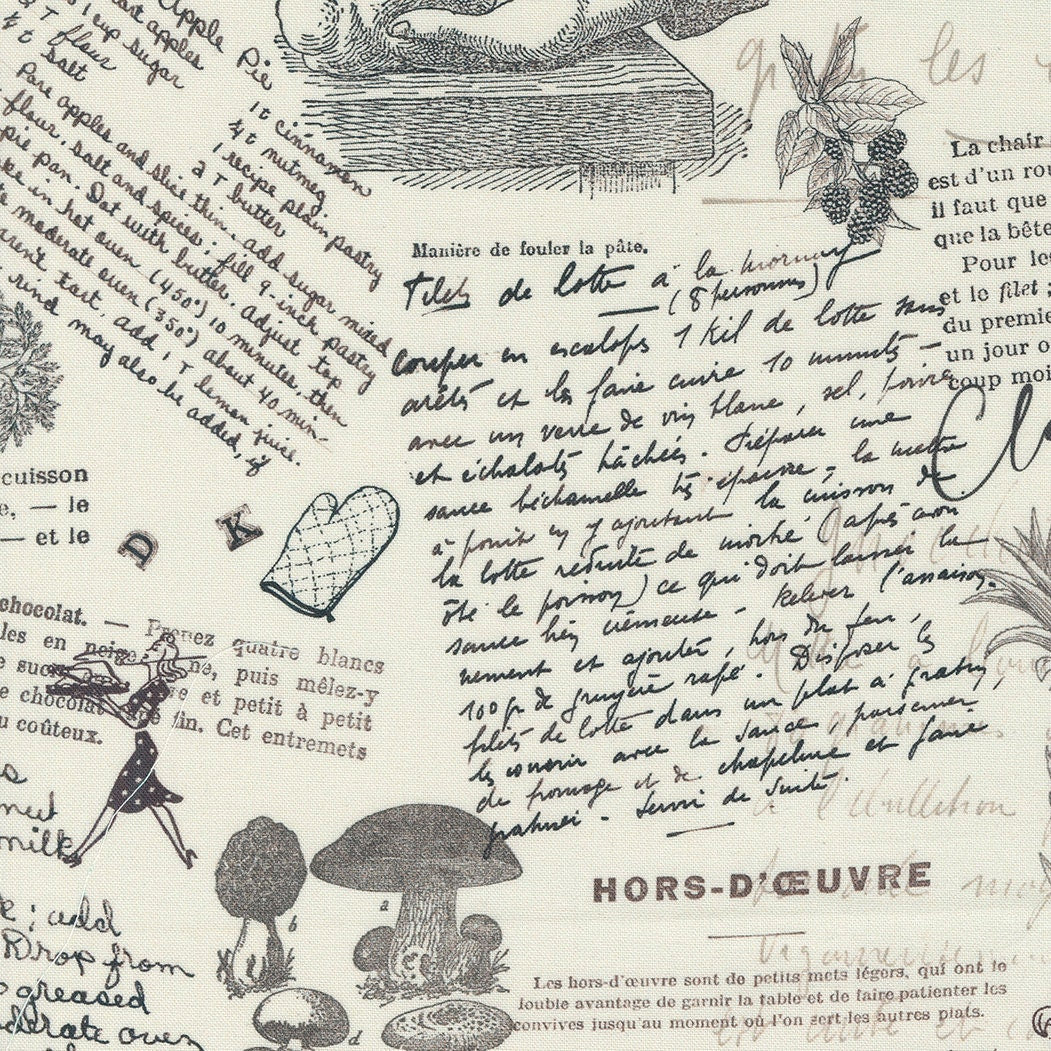 Apple Pie
tart apples
1 cup sugar
T flour
t salt
1 t cinnamon
1/4 t nutmeg
1 recipe plain pastry
2 T butter
Pare apples and slice thin. add sugar mixed
flour, salt and spices; fill 9-inch pastry
pie pan. Dot with butter. Adjust top
in hot oven (450°) 10 minutes, then
moderate oven (350°) about 40 min-
tart, add 1 T lemon juice.
rind may also be added, if
Manière de fouler la pâte.
filets de lotte à la mornay
(8 personnes)
Couper en escalops 1 kil de lotte sans
arêtes et les faire cuire 10 minutes -
avec un verre de vin blanc, sel, poivre
et échalots hâchées. Préparer une
sauce béchamelle très épaisse, la mettre
à point en y ajoutant la cuisson de
la lotte réduite de moitié (après avoir
ôté le poisson) ce qui doit laisser la
sauce très crémeuse - Relever l'assaison-
nement et ajouter, hors du feu,
100 gr de gruyère rapé. Disposer les
filets de lotte dans un plat à gratin,
les couvrir avec la sauce, parsemer
de fromage et de chapelure et faire
gratiner - Servir de suite.
La chair
est d'un rou
il faut que
que la bête
Pour les
et le filet ;
du premie
un jour o
coup moi
les
cuisson
e, — le
— et le
D K
chocolat. — Prenez quatre blancs
les en neige, puis mêlez-y
e et petit à petit
e chocolat fin. Cet entremets
u coûteux.
milk
; add
Drop from
greased
oven
b
a
d
HORS-D'ŒUVRE
l'ébullition
Les hors-d'œuvre sont de petits mets légers, qui ont le
louble avantage de garnir la table et de faire patienter les
convives jusqu'au moment où l'on sert les autres plats.